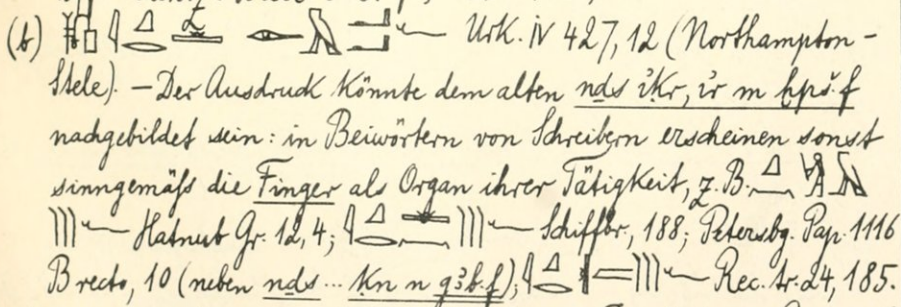 (b) 𓏞 𓊪 𓇋 𓈎 𓂋 𓏛 𓁹 𓅓 𓂝 𓂝 𓆑 Urk. IV 427, 12 (Northampton-
Stele). – Der Ausdruck könnte dem alten nḏs ı͗ḳr, ı͗r m ḫpš.f
nachgebildet sein: in Beiwörtern von Schreibern erscheinen sonst
sinngemäß die Finger als Organ ihrer Tätigkeit, z. B. 𓈎
𓆑 Hatnub Gr. 12, 4; 𓇋 𓈎 𓂋 𓆑 Schiffbr., 188; Petersbg. Pap. 1116
B recto, 10 (neben nḏs … ḳn n gꜣb.f); 𓇋 𓈎 𓂋 𓆑 Rec. tr. 24, 185.